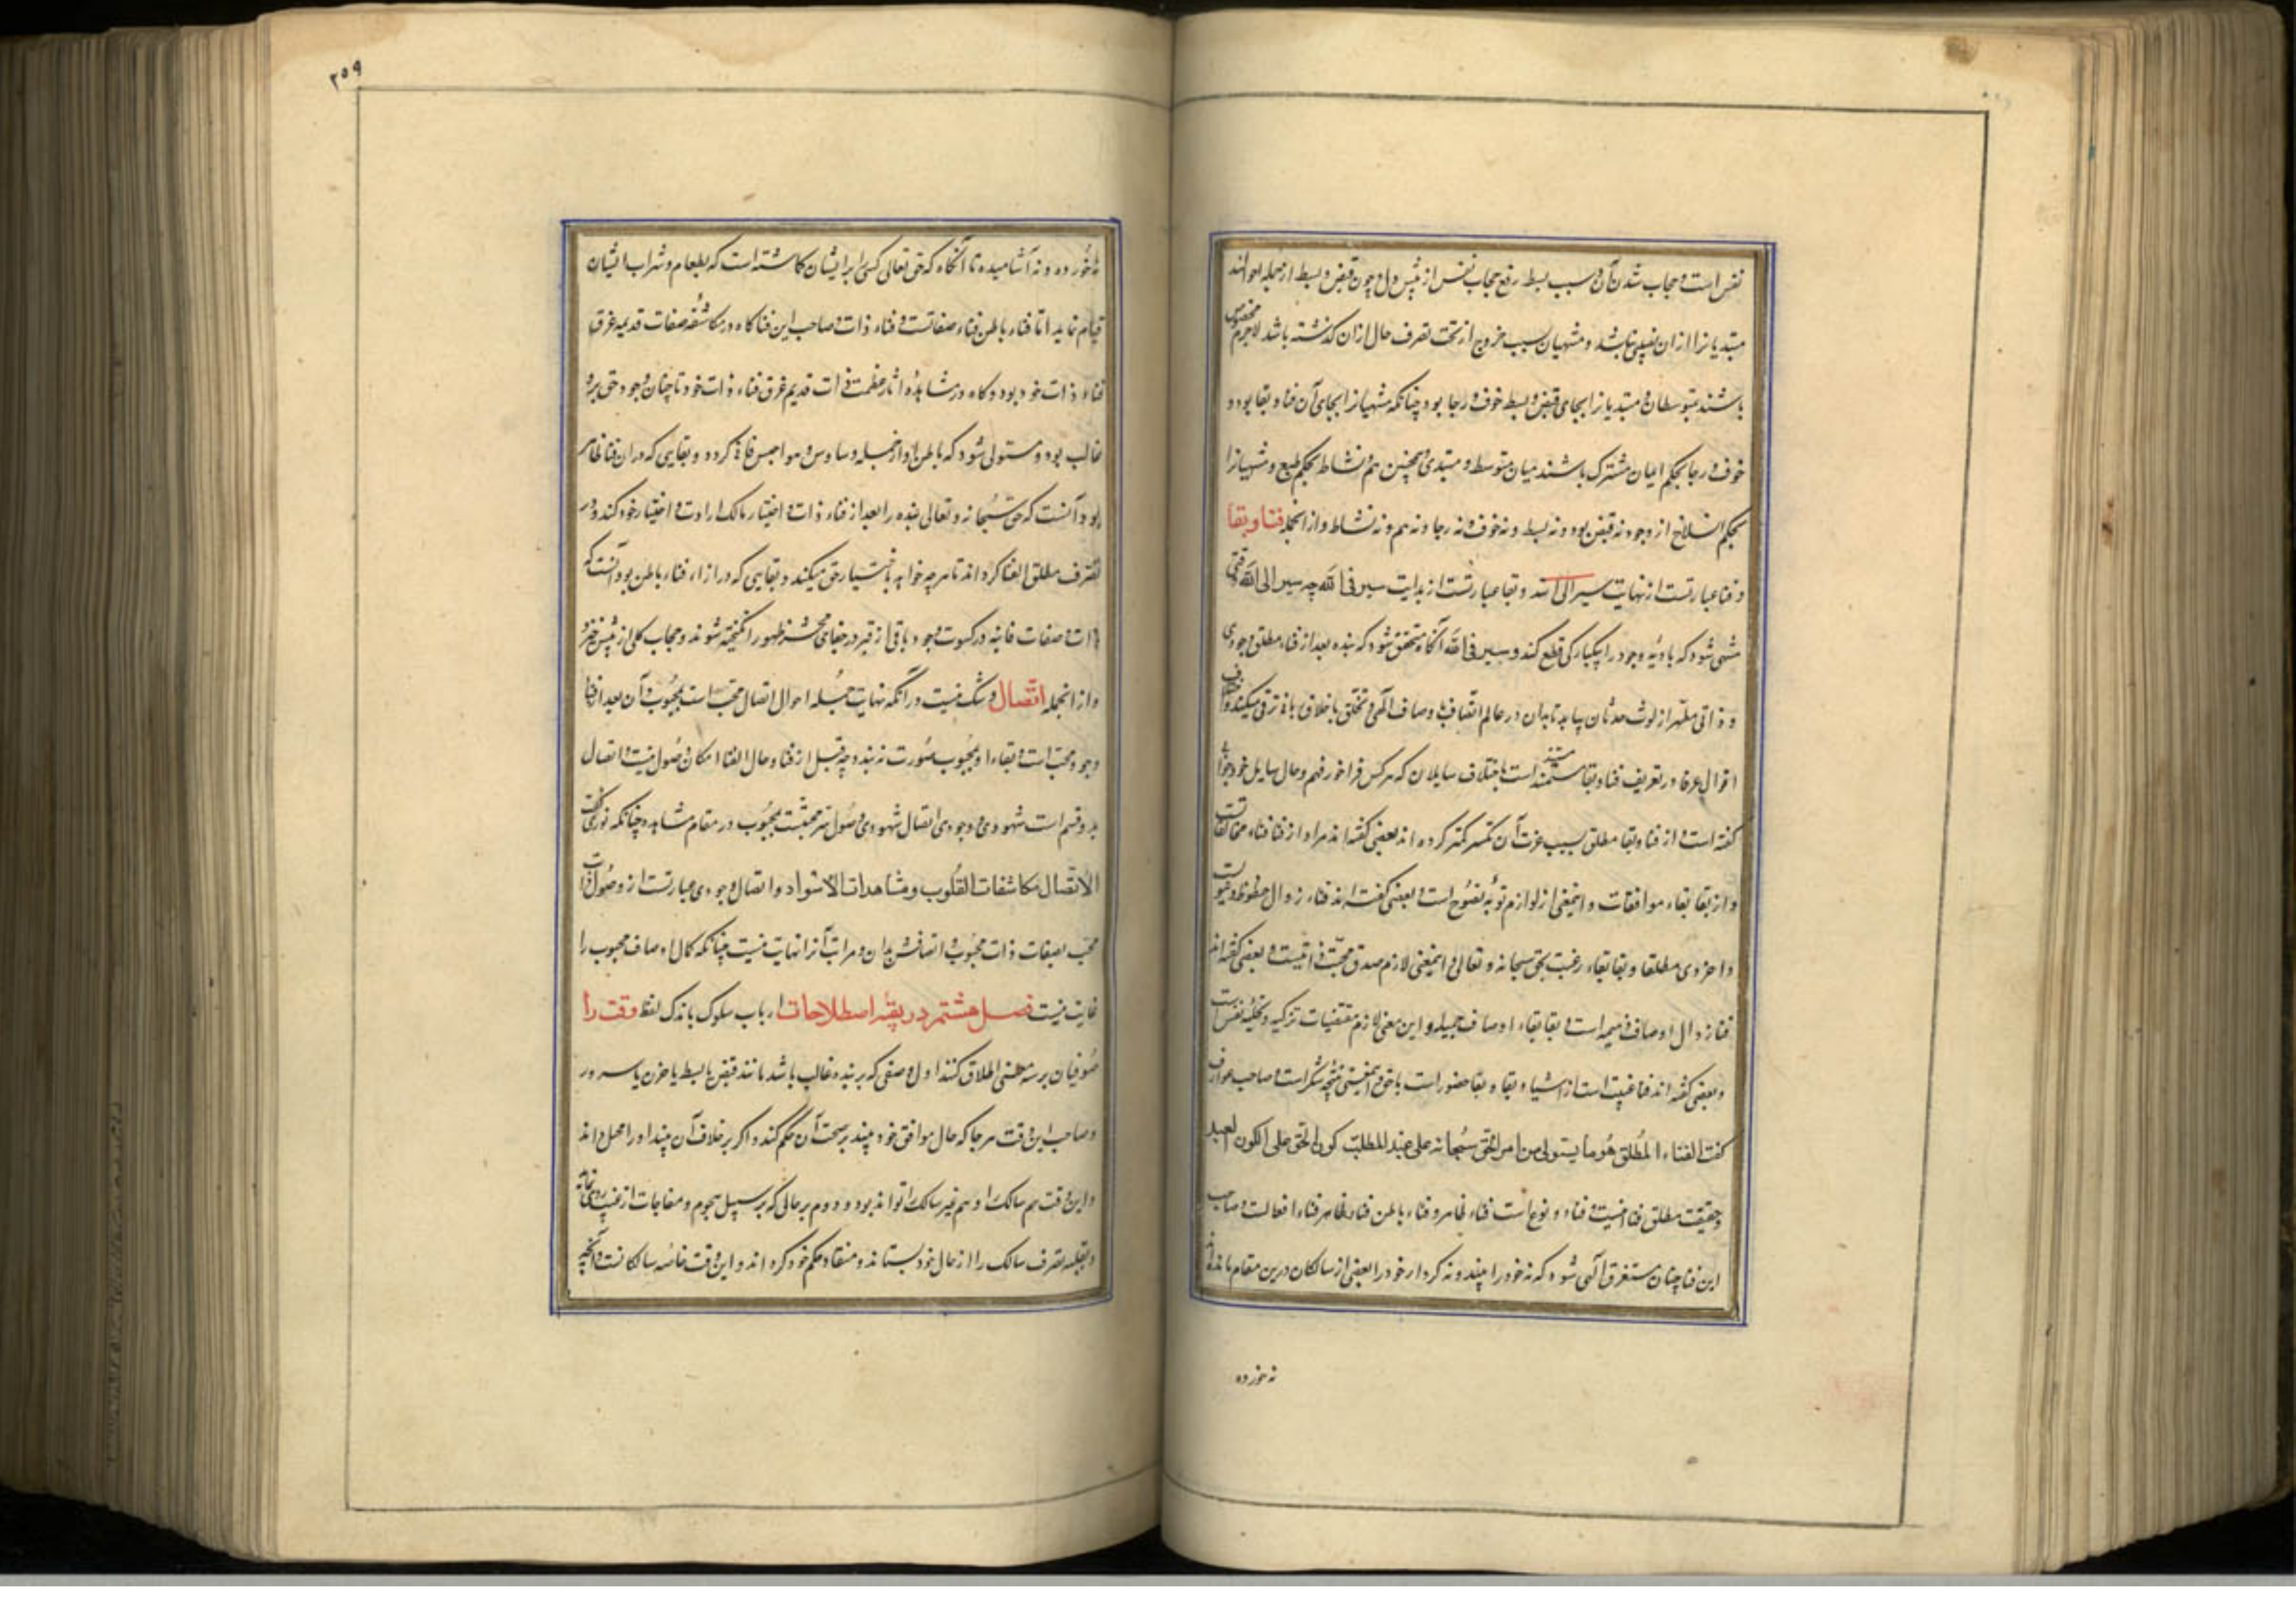 نفس است و حجاب شدن آن و سبب بسط رفع حجاب نفس از پیش دل و چون قبض و بسط از جمله احوالند
مبتدیانرا ازان نصیبی نباشد و منتهیان بسبب خروج از تحت تصرف حال ازان گذشته باشد لاجرم مخصوص
باشند بمتوسطان و مبتدیانرا بجای قبض و بسط خوف و رجا بود چنانکه منتهیانرا بجای آن فنا و بقا بود و
خوف و رجا بحکم ایمان مشترک باشند میان متوسط و مبتدی و همچنین هم و نشاط بحکم طبع و منتهیانرا
بحکم انسلاخ از وجود نه قبض بود و نه بسط و نه خوف و نه رجا و نه هم و نه نشاط و از انجمله فنا و بقا
و فنا عبارتست از نهایت سیر الی الله و بقا عبارتست از بدایت سیر فی الله چه سیر الی الله وقتی
منتهی شود که بادیه وجود را بیکبارگی قطع کند و سیر فی الله آنگاه متحقق شود که بنده بعد از فناء مطلق وجودی
و ذاتی مطهر از لوث حدثان بیابد تا بدان در عالم اتصاف باوصاف الهی و تخلق باخلاق ترقی میکند و اختلاف
اقوال عرفا در تعریف فنا و بقا مستند است باختلاف سایلان که هر کس فراخور فهم و حال سایل خود جوابی
گفته است و از فنا و بقا مطلق بسبب عزت آن کمتر کرده اند بعضی گفته اند مراد از فنا فناء مخالفاتست
و از بقا بقاء موافقات و اینمعنی از لوازم توبه نصوح است و بعضی گفته اند فناء زوال حظوظ دنیویست
و اخروی مطلقا و بقا بقاء رغبت بحق سبحانه و تعالی و اینمعنی لازم صدق محبت ذاتیست و بعضی گفته اند
فنا زوال اوصاف ذمیمه است و بقا بقاء اوصاف جمیله و این معنی لازم مقتضیات تزکیه و تحلیه نفس است
و بعضی گفته اند فنا غیبت است از اشیاء و بقا حضور است با حق و اینمعنی نتیجه سکر است و صاحب عوارف
گفت الفناء المطلق هو ما یستولی من امر الحق سبحانه علی عبد کون الحق علی الکون العبد
و حقیقت مطلق فنا اینست و فناء دو نوع است فناء ظاهر و فناء باطن فناء ظاهر فناء افعالست و صاحب
این فنا چنان مستغرق الهی شود که نه خود را بیند و نه کردار خود را بعضی از سالکان درین مقام مانده اند
نه خورده
۲۵۹
نه خورده و نه آشامیده تا آنگاه که حق تعالی کسی را بر ایشان گماشته است که بطعام و شراب ایشان
قیام نماید اما فناء باطن فناء صفاتست و فناء ذات و صاحب این فنا گاه در مکاشفه صفات قدیمه غرق
فناء ذات خود بود و گاه در مشاهده آثار عظمت ذات قدیم غرق فناء ذات خود تا چنان وجود حق برو
غالب بود و مستولی شود که باطن او از جمله وساوس و هواجس فانی گردد و بقایی که دران فنا ظاهر
بود آنست که حق سبحانه و تعالی بنده را بعد از فناء ذات و اختیار مالک ارادت و اختیار خود کند و در
تصرف مطلق گرداند تا هر چه خواهد باختیار حق میکند و بقایی که در ازاء فناء باطن بود آنست که
ذات و صفات فانیه در کسوت وجود باقی از قبر در محشر ظهور انگیخته شوند و حجاب کلی از پیش
و از انجمله اتصال و شک نیست در آنکه نهایت جمله احوال اتصال محب است بمحبوب و آن بعد از فنا
وجود محب است و بقاء او بمحبوب صورت نبندد چه قبل از فنا و حال الفنا امکان وصول نیست و اتصال
بر دو قسم است شهودی و وجودی اتصال شهودی وصول سر محبست بمحبوب در مقام مشاهده چنانکه نوری گفت
الاتصال مکاشفات القلوب و مشاهدات الاسرار و اتصال وجودی عبارتست از وصول ذات
محب بصفات ذات محبوب و اتصافش بدان و مراتب آنرا نهایت نیست چنانکه کمال اوصاف محبوب را
غایت نیست فصل هشتم در بقیه اصطلاحات ارباب سلوک بدانک لفظ وقت را
صوفیان بر سه معنی اطلاق کنند اول وصفی که بر بنده غالب باشد مانند قبض یا بسط یا حزن یا سرور
و صاحب این وقت هر جا که حال موافق خود بیند بر صحت آن حکم کند و اگر بر خلاف آن بیند او را مختل داند
و این وقت هم سالک را و هم غیر سالک را تواند بود و دوم بر حالی که بر سبیل هجوم و مفاجات از غیب روی نماید
و بغلبه تصرف سالک را از حال خود بستاند و منقاد حکم خود گرداند و این وقت خاصه سالکانست و آنچه